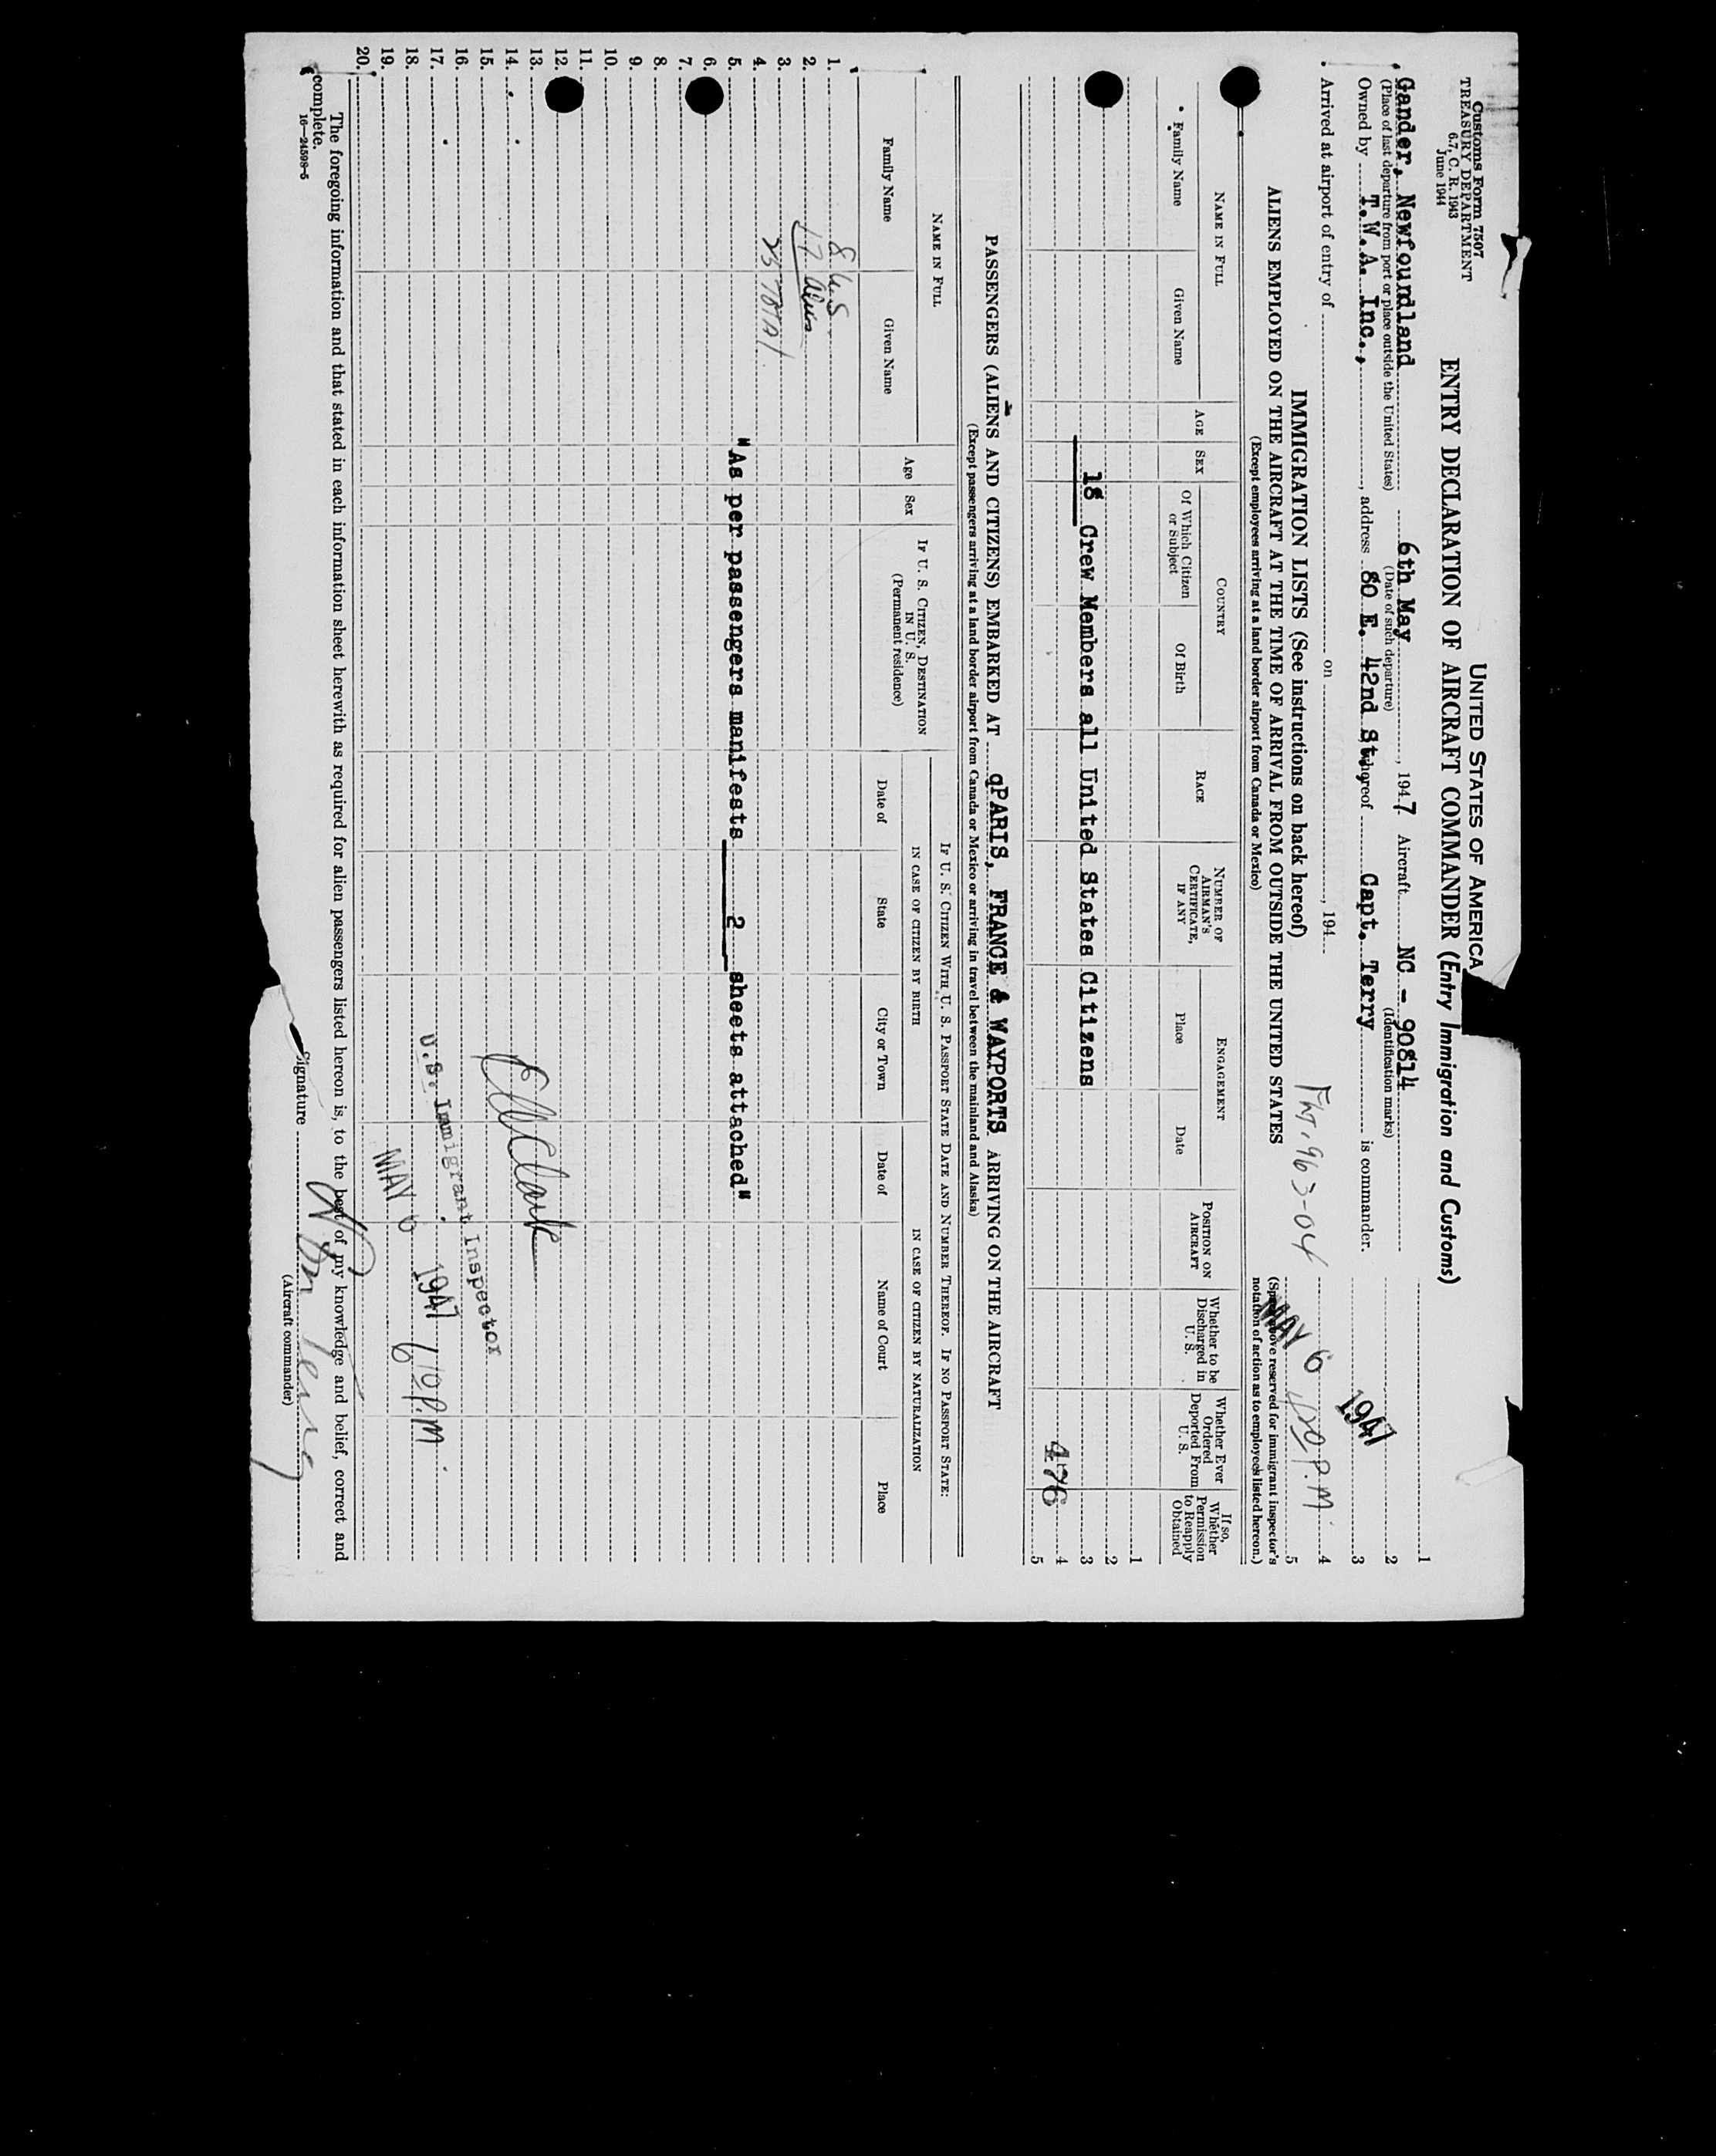 Customs Form 7507
TREASURY DEPARTMENT
6.7, C. R. 1943
June 1944
UNITED STATES OF AMERICA
ENTRY DECLARATION OF AIRCRAFT COMMANDER (Entry Immigration and Customs)
Gander, Newfoundland 6th May, 1947 Aircraft NC - 90814
(Place of last departure from port or place outside the United States) (Date of such departure) (Identification marks)
Owned by T.W.A. Inc., address 80 E. 42nd St., thereof Capt. Terry is commander.
Arrived at airport of entry of on , 194
1
2
3
4
5
1947
MAY 6 P.M.
Flt. 963-04
IMMIGRATION LISTS (See instructions on back hereof)
(Space above reserved for immigrant inspector's notation of action as to employees listed hereon.)
ALIENS EMPLOYED ON THE AIRCRAFT AT THE TIME OF ARRIVAL FROM OUTSIDE THE UNITED STATES
(Except employees arriving at a land border airport from Canada or Mexico)
NAME IN FULL
Family Name
Given Name
AGE
SEX
COUNTRY
Of Which Citizen or Subject
Of Birth
RACE
NUMBER OF AIRMAN'S CERTIFICATE, IF ANY
ENGAGEMENT
Place
Date
POSITION ON AIRCRAFT
Whether to be Discharged in U. S.
Whether Ever Ordered Deported From U. S.
If so, Whether Permission to Reapply Obtained
1
2
18 Crew Members all United States Citizens 3
4
476
5
PASSENGERS (ALIENS AND CITIZENS) EMBARKED AT qPARIS, FRANCE & WAYPORTS ARRIVING ON THE AIRCRAFT
(Except passengers arriving at a land border airport from Canada or Mexico or arriving in travel between the mainland and Alaska)
NAME IN FULL
Family Name
Given Name
Age
Sex
IF U. S. CITIZEN, DESTINATION IN U. S.
(Permanent residence)
IF U. S. CITIZEN WITH U. S. PASSPORT STATE DATE AND NUMBER THEREOF. IF NO PASSPORT STATE:
IN CASE OF CITIZEN BY BIRTH
Date of
State
City or Town
IN CASE OF CITIZEN BY NATURALIZATION
Date of
Name of Court
Place
1. 8 U.S.
2. 17 aliens
3. 25 TOTAL
4.
5. "As per passengers manifests 2 sheets attached"
6.
7.
8.
9.
10.
11.
12.
13.
14.
15.
16. U.S. Immigrant Inspector
17.
18. MAY 6 1947 P.M.
19.
20.
The foregoing information and that stated in each information sheet herewith as required for alien passengers listed hereon is, to the best of my knowledge and belief, correct and
complete.
Signature Wm Terry
(Aircraft commander)
16—24598-5